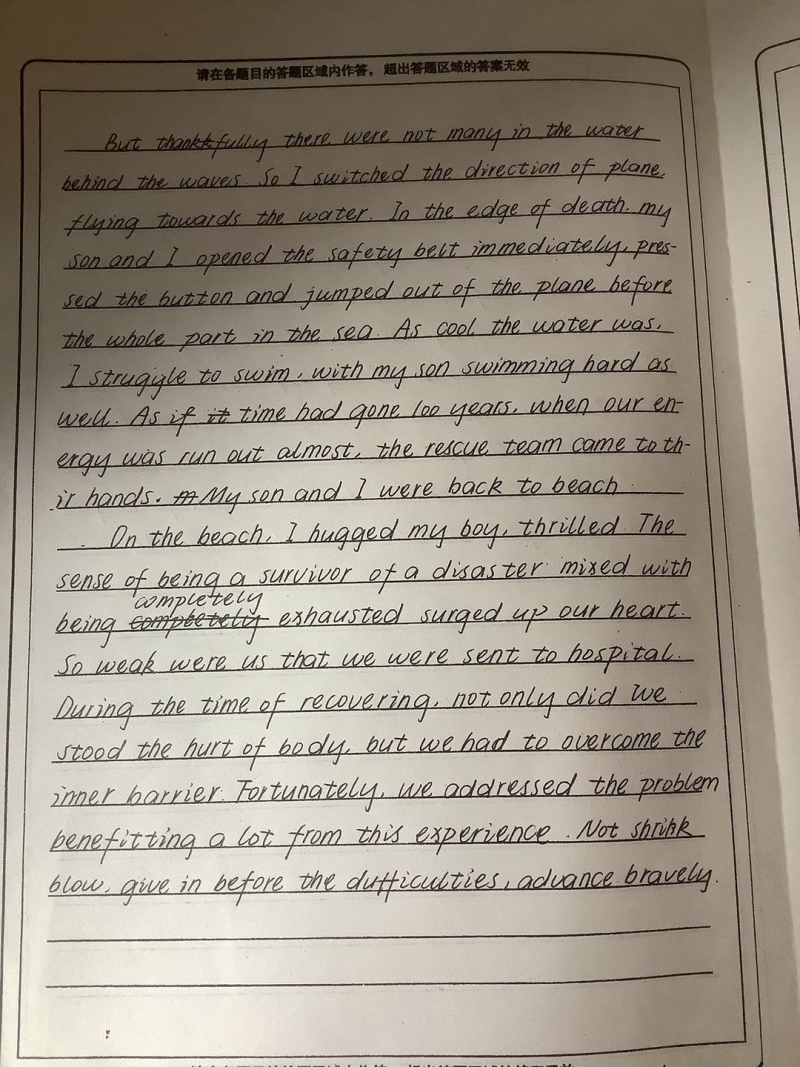 请在各题目的答题区域内作答，超出答题区域的答案无效
But thankkfully there were not many in the water
behind the waves. So I switched the direction of plane,
flying towards the water. In the edge of death, my
son and I opened the safety belt immediately, pres-
sed the button and jumped out of the plane before
the whole part in the sea. As cool the water was,
I struggle to swim, with my son swimming hard as
well. As if it time had gone 100 years, when our en-
ergy was run out almost, the rescue team came to th-
ir hands. My son and I were back to beach
On the beach, I hugged my boy, thrilled. The
sense of being a survivor of a disaster mixed with
completely
being completely exhausted surged up our heart.
So weak were us that we were sent to hospital.
During the time of recovering, not only did we
stood the hurt of body, but we had to overcome the
inner barrier. Fortunately, we addressed the problem
benefitting a lot from this experience. Not shrink
blow, give in before the difficulties, advance bravely.